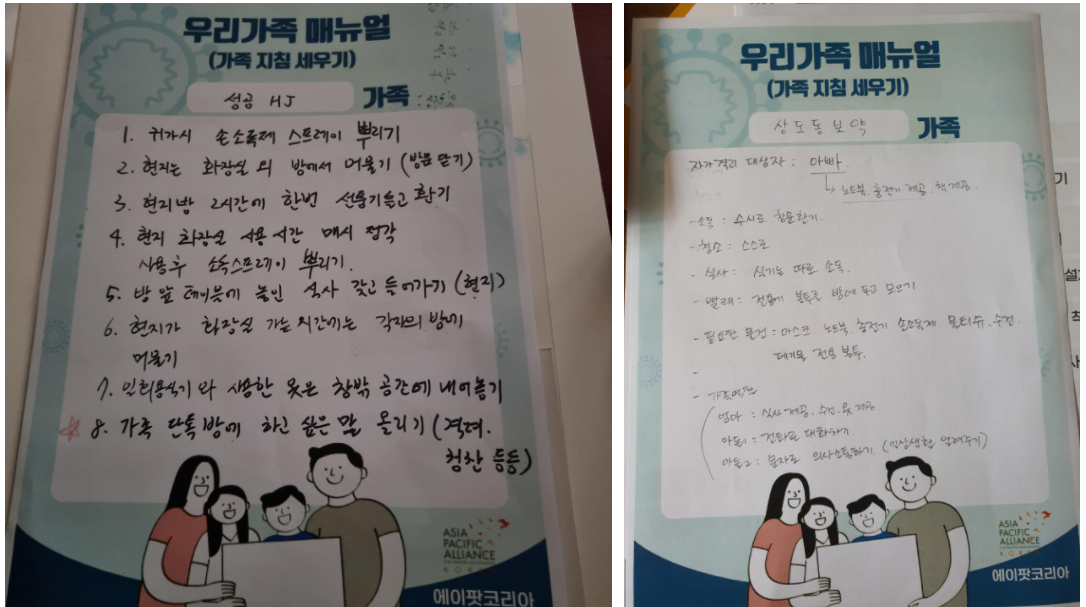 우리가족 매뉴얼
(가족 지침 세우기)
성공 HJ 가족
1. 귀가시 손소독제 스프레이 뿌리기
2. 현지는 화장실 외 방에서 머물기 (방문 닫기)
3. 현지방 2시간에 한번 선풍기틀고 환기
4. 현지 화장실 사용시간 매시 정각
사용후 소독스프레이 뿌리기.
5. 방 앞 테이블에 놓인 식사 갖고 들어가기 (현지)
6. 현지가 화장실 가는 시간에는 각자의 방에
머물기
7. 일회용식기와 사용한 옷은 창밖 공간에 내어놓기
☆ 8. 가족 단톡방에 하고 싶은 말 올리기 (격려.
칭찬 등등)
ASIA
PACIFIC
ALLIANCE
KOREA
에이팟코리아
우리가족 매뉴얼
(가족 지침 세우기)
상도동보약 가족
자가격리 대상자 : 아빠.
노트북. 충전기 제공. 책 제공.
- 소독 : 수시로 창문환기.
- 청소 : 스스로
- 식사 : 식기는 따로 소독.
- 빨래 : 전용 봉투로 방에 두고 모으기
- 필요한 물건 : 마스크 노트북. 충전기 손소독제 물티슈. 수건.
폐기물 전용 봉투.
-
- 가족역할
엄마 : 식사제공. 수건. 옷 제공.
아들1 : 전화로 대화하기.
아들2 : 문자로 의사소통하기. (일상생활 알려주기)
ASIA
PACIFIC
ALLIANCE
KOREA
에이팟코리아